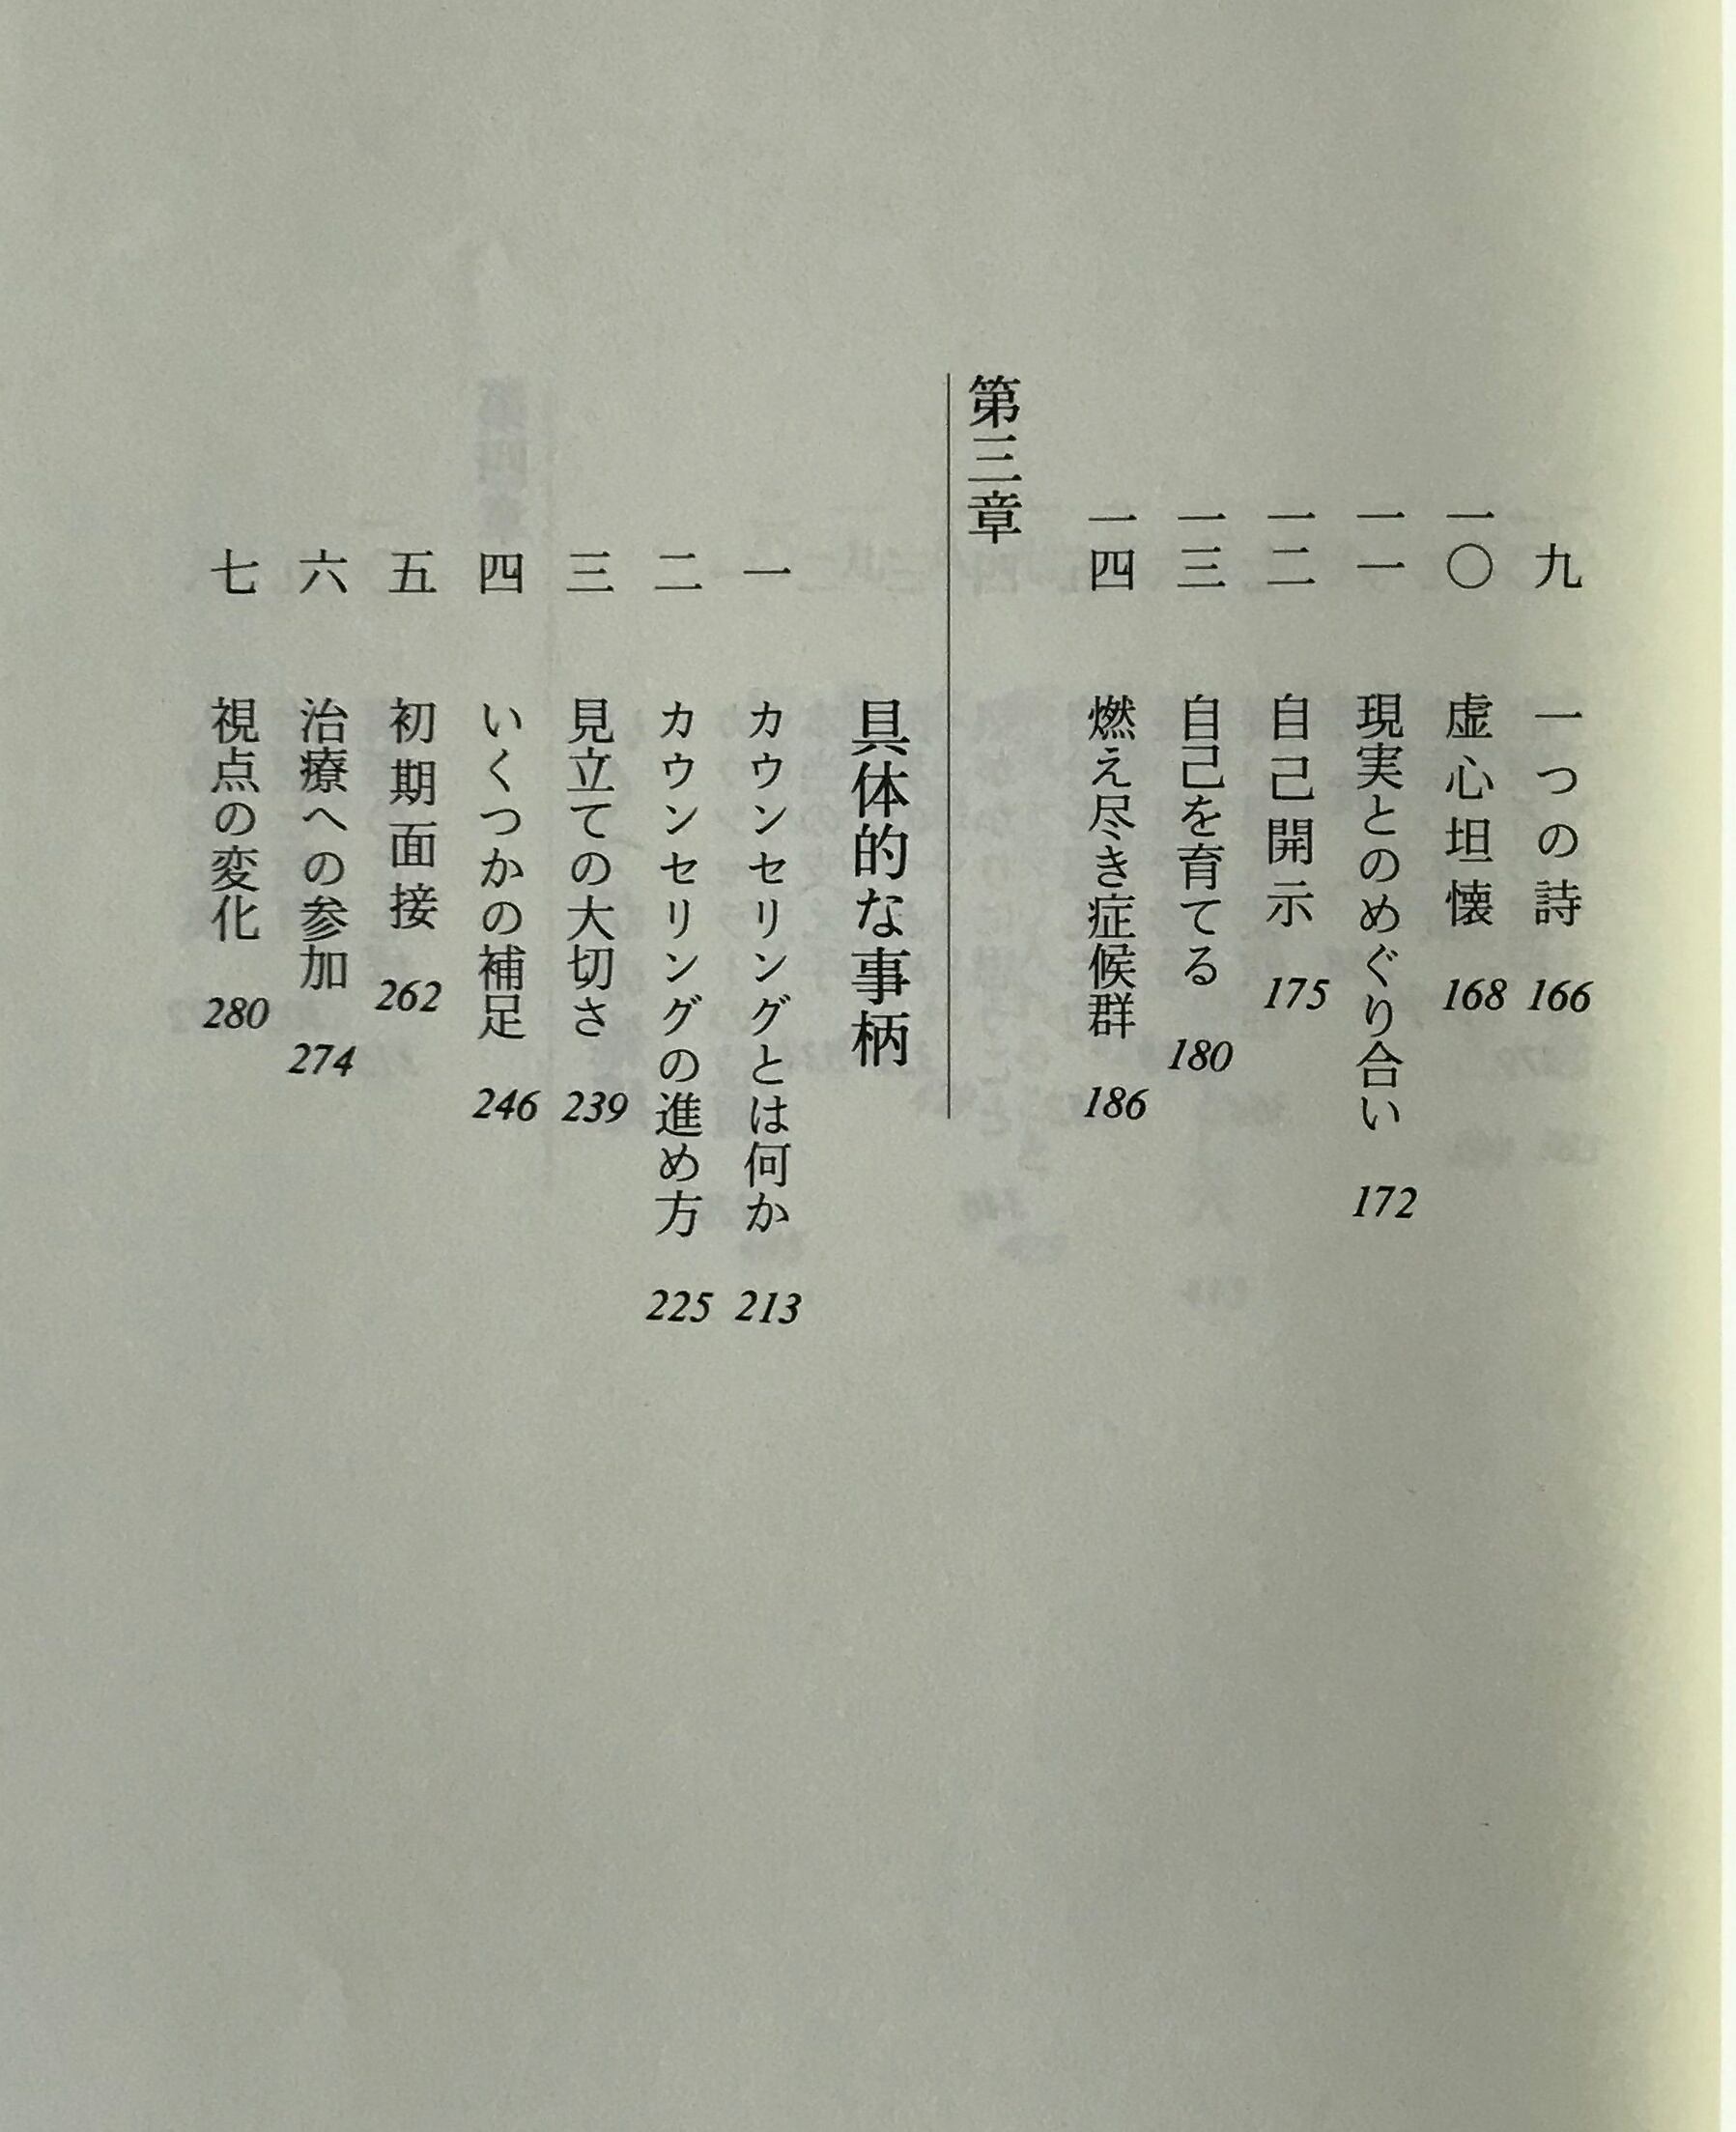 九 一つの詩 166
一〇 虚心坦懐 168
一一 現実とのめぐり合い 172
一二 自己開示 175
一三 自己を育てる 180
一四 燃え尽き症候群 186
第三章 具体的な事柄
一 カウンセリングとは何か 213
二 カウンセリングの進め方 225
三 見立ての大切さ 239
四 いくつかの補足 246
五 初期面接 262
六 治療への参加 274
七 視点の変化 280